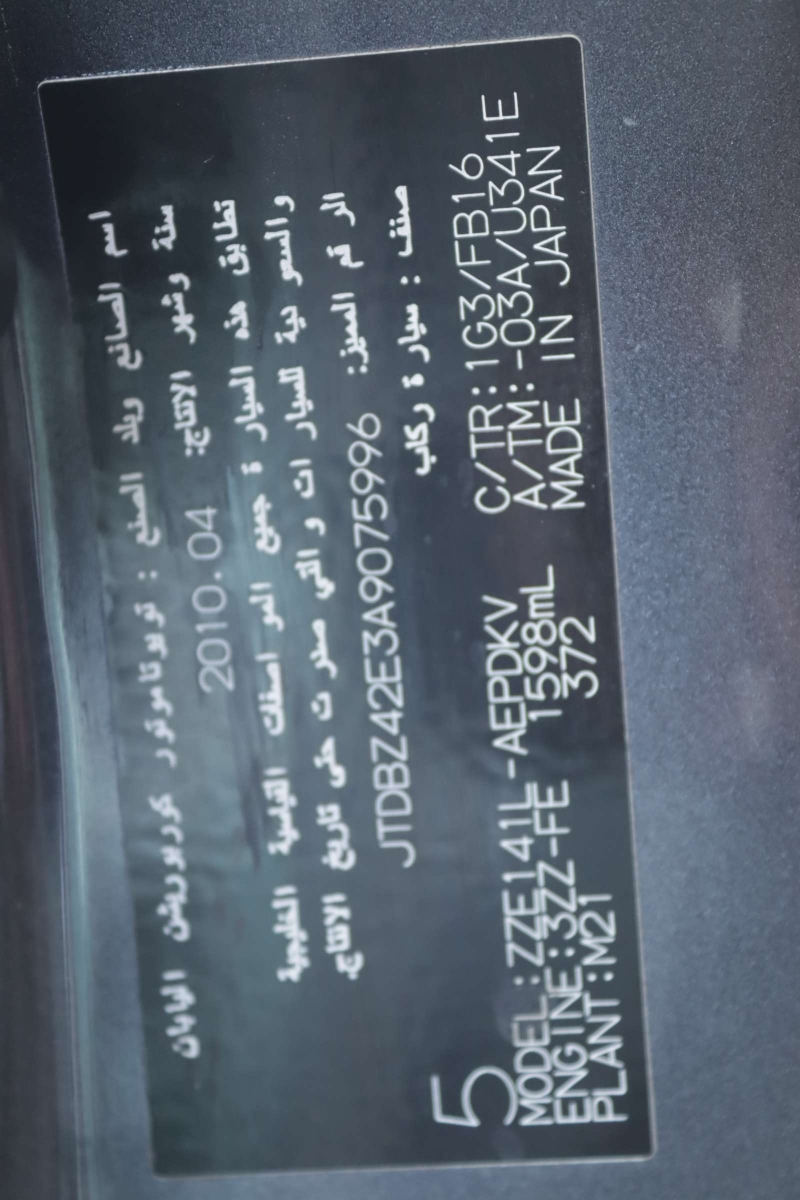 اسم الصانع وبلد الصنع : تويوتا موتور كوربوريشن اليابان
سنة وشهر الانتاج: 2010.04
تطابق هذه السيارة جميع المواصفات القياسية الخليجية
والسعودية للسيارات والتي صدرت حتى تاريخ الانتاج.
الرقم المميز: JTDBZ42E3A9075996
صنف : سيارة ركاب
5
MODEL:ZZE141L-AEPDKV C/TR:1G3/FB16
ENGINE:3ZZ-FE 1598mL A/TM:-03A/U341E
PLANT:M21 372 MADE IN JAPAN